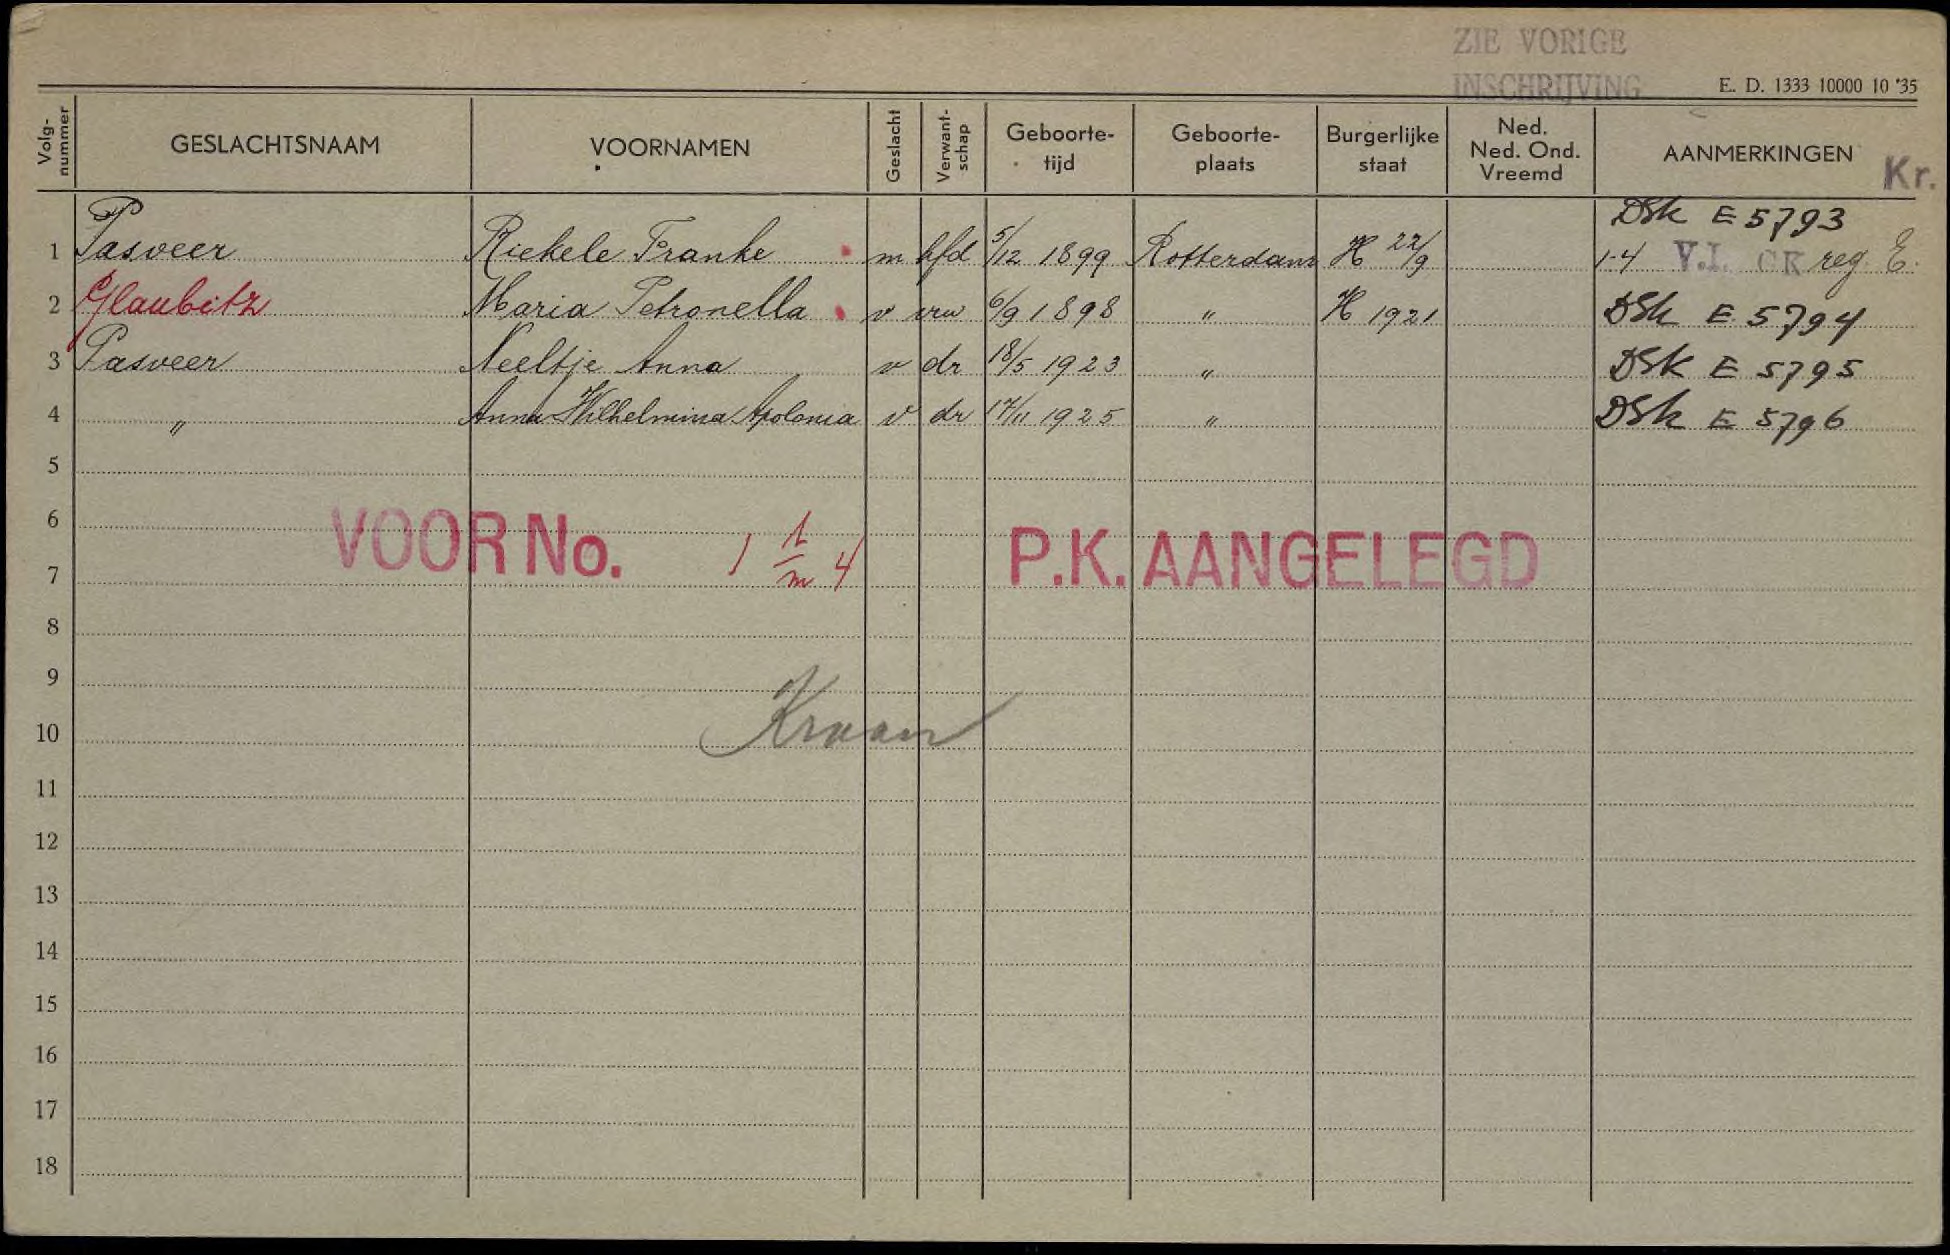 ZIE VORIGE
INSCHRIJVING
E. D. 1333 10000 10 '35
Volg-nummer GESLACHTSNAAM VOORNAMEN Geslacht Verwant-schap Geboorte-tijd Geboorte-plaats Burgerlijke staat Ned. Ned. Ond. Vreemd AANMERKINGEN Kr.
DSK E 5793
1 Pasveer Riekele Franke m hfd 5/12 1899 Rotterdam H 22/9 1-4 V.I. CK reg. E.
2 Glaubitz Maria Petronella v vrw 6/9 1898 " H 1921 DSK E 5794
3 Pasveer Neeltje Anna v dr 18/5 1923 " DSK E 5795
4 " Anna Wilhelmina Apolonia v dr 17/11 1925 " DSK E 5796
5
6
VOOR No. 1 t/m 4 P.K. AANGELEGD
7
8
9
Kraan
10
11
12
13
14
15
16
17
18